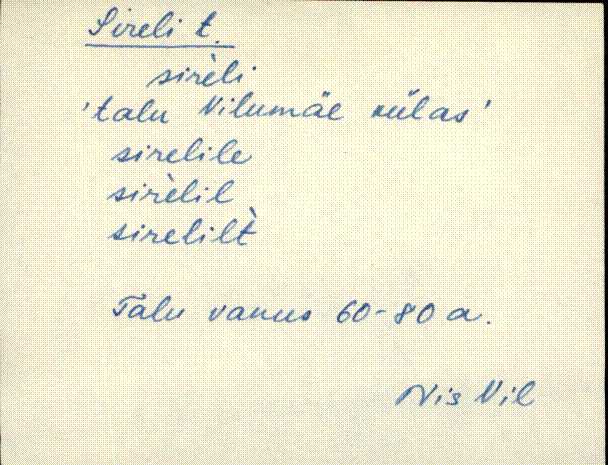 Sireli t.
sirèli
'talu Vilumäe külas'
sirelile
sirèlil
sirelilt̀
Talu vanus 60-80 a.
Nis Vil